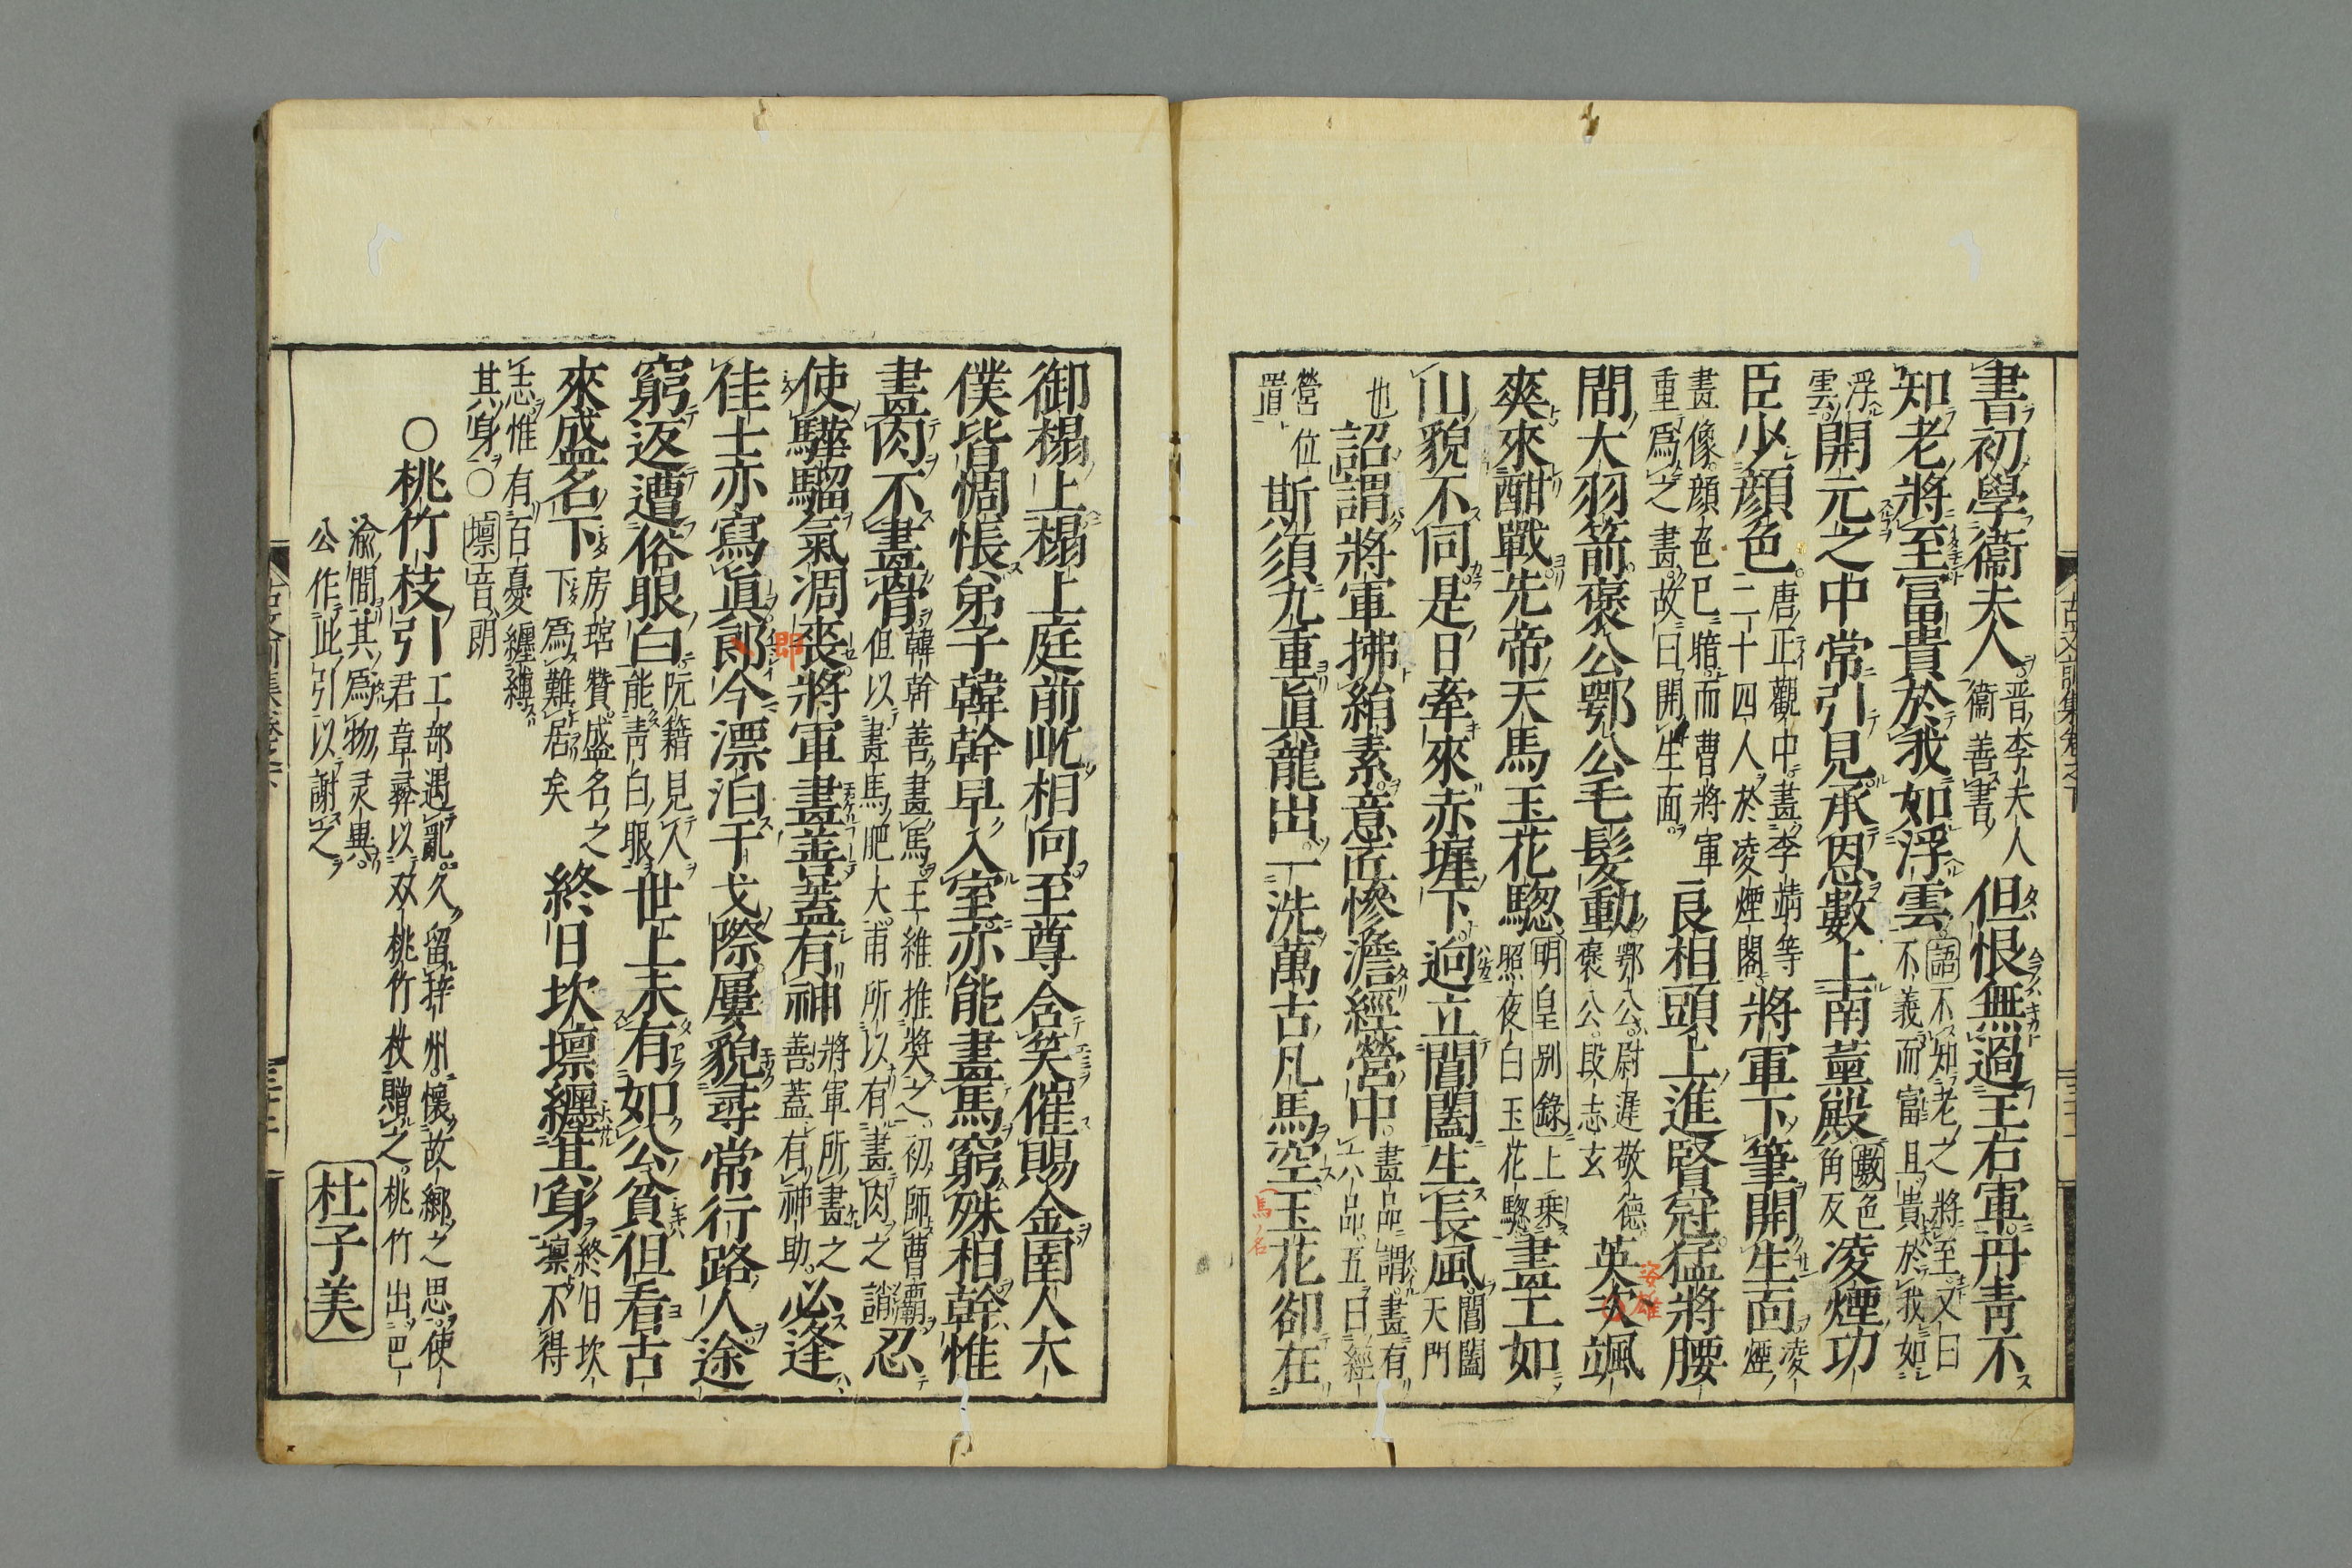 書初學衞夫人晋李夫人衞善書但恨無過王右軍丹青不
知老將至冨貴於我如浮雲語不知老之將至又曰不義而富且貴於我如
浮雲開元之中常引見承恩數上南薫殿數色角反凌煙功
臣少顔色唐正觀中畫李靖等二十四人於凌煙閣將軍下筆開生面凌煙
畫像顔色已暗而曹將軍重爲之畫故曰開生面良相頭上進賢冠猛將腰
間大羽箭褒公鄂公毛髪動鄂公尉遲敬德褒公段志玄英次颯
姿雄
爽來酣戰先帝天馬玉花驄明皇別錄上乗照夜白玉花驄畫工如
山貌不同是日牽來赤墀下逈立閶闔生長風閶闔天門
也詔謂將軍拂絹素意匠慘澹經營中畫品謂畫有八品五曰經
營位置斯須九重眞龍出一洗萬古凡馬空玉花卻在
馬名
御榻上榻上庭前屹相向至尊含笑催賜金圉人太
僕皆惆悵弟子韓幹早入室亦能畫馬窮殊相幹惟
畫肉不畫骨韓幹善畫馬王維推奬之初師曹霸但以畫馬肥大甫所以有畫肉之誚忍
使驊騮氣凋喪將軍畫善蓋有神將軍所畫之善蓋有神助必逢
佳士亦寫眞郎今漂泊干戈際屢貌尋常行路人途
即
窮返遭俗眼白阮籍見人能青白眼世上未有如公貧但看古
來盛名下房琯贊盛名之下爲難居矣終日坎壈纏其身終日坎壈不得
志惟有百憂纏縛其身〇壈音朗
〇桃竹枝引工部遇亂久留梓州懷故鄕之思使君章彛以双桃竹杖贈之桃竹出巴
渝間其爲物灵異公作此引以謝之
杜子美